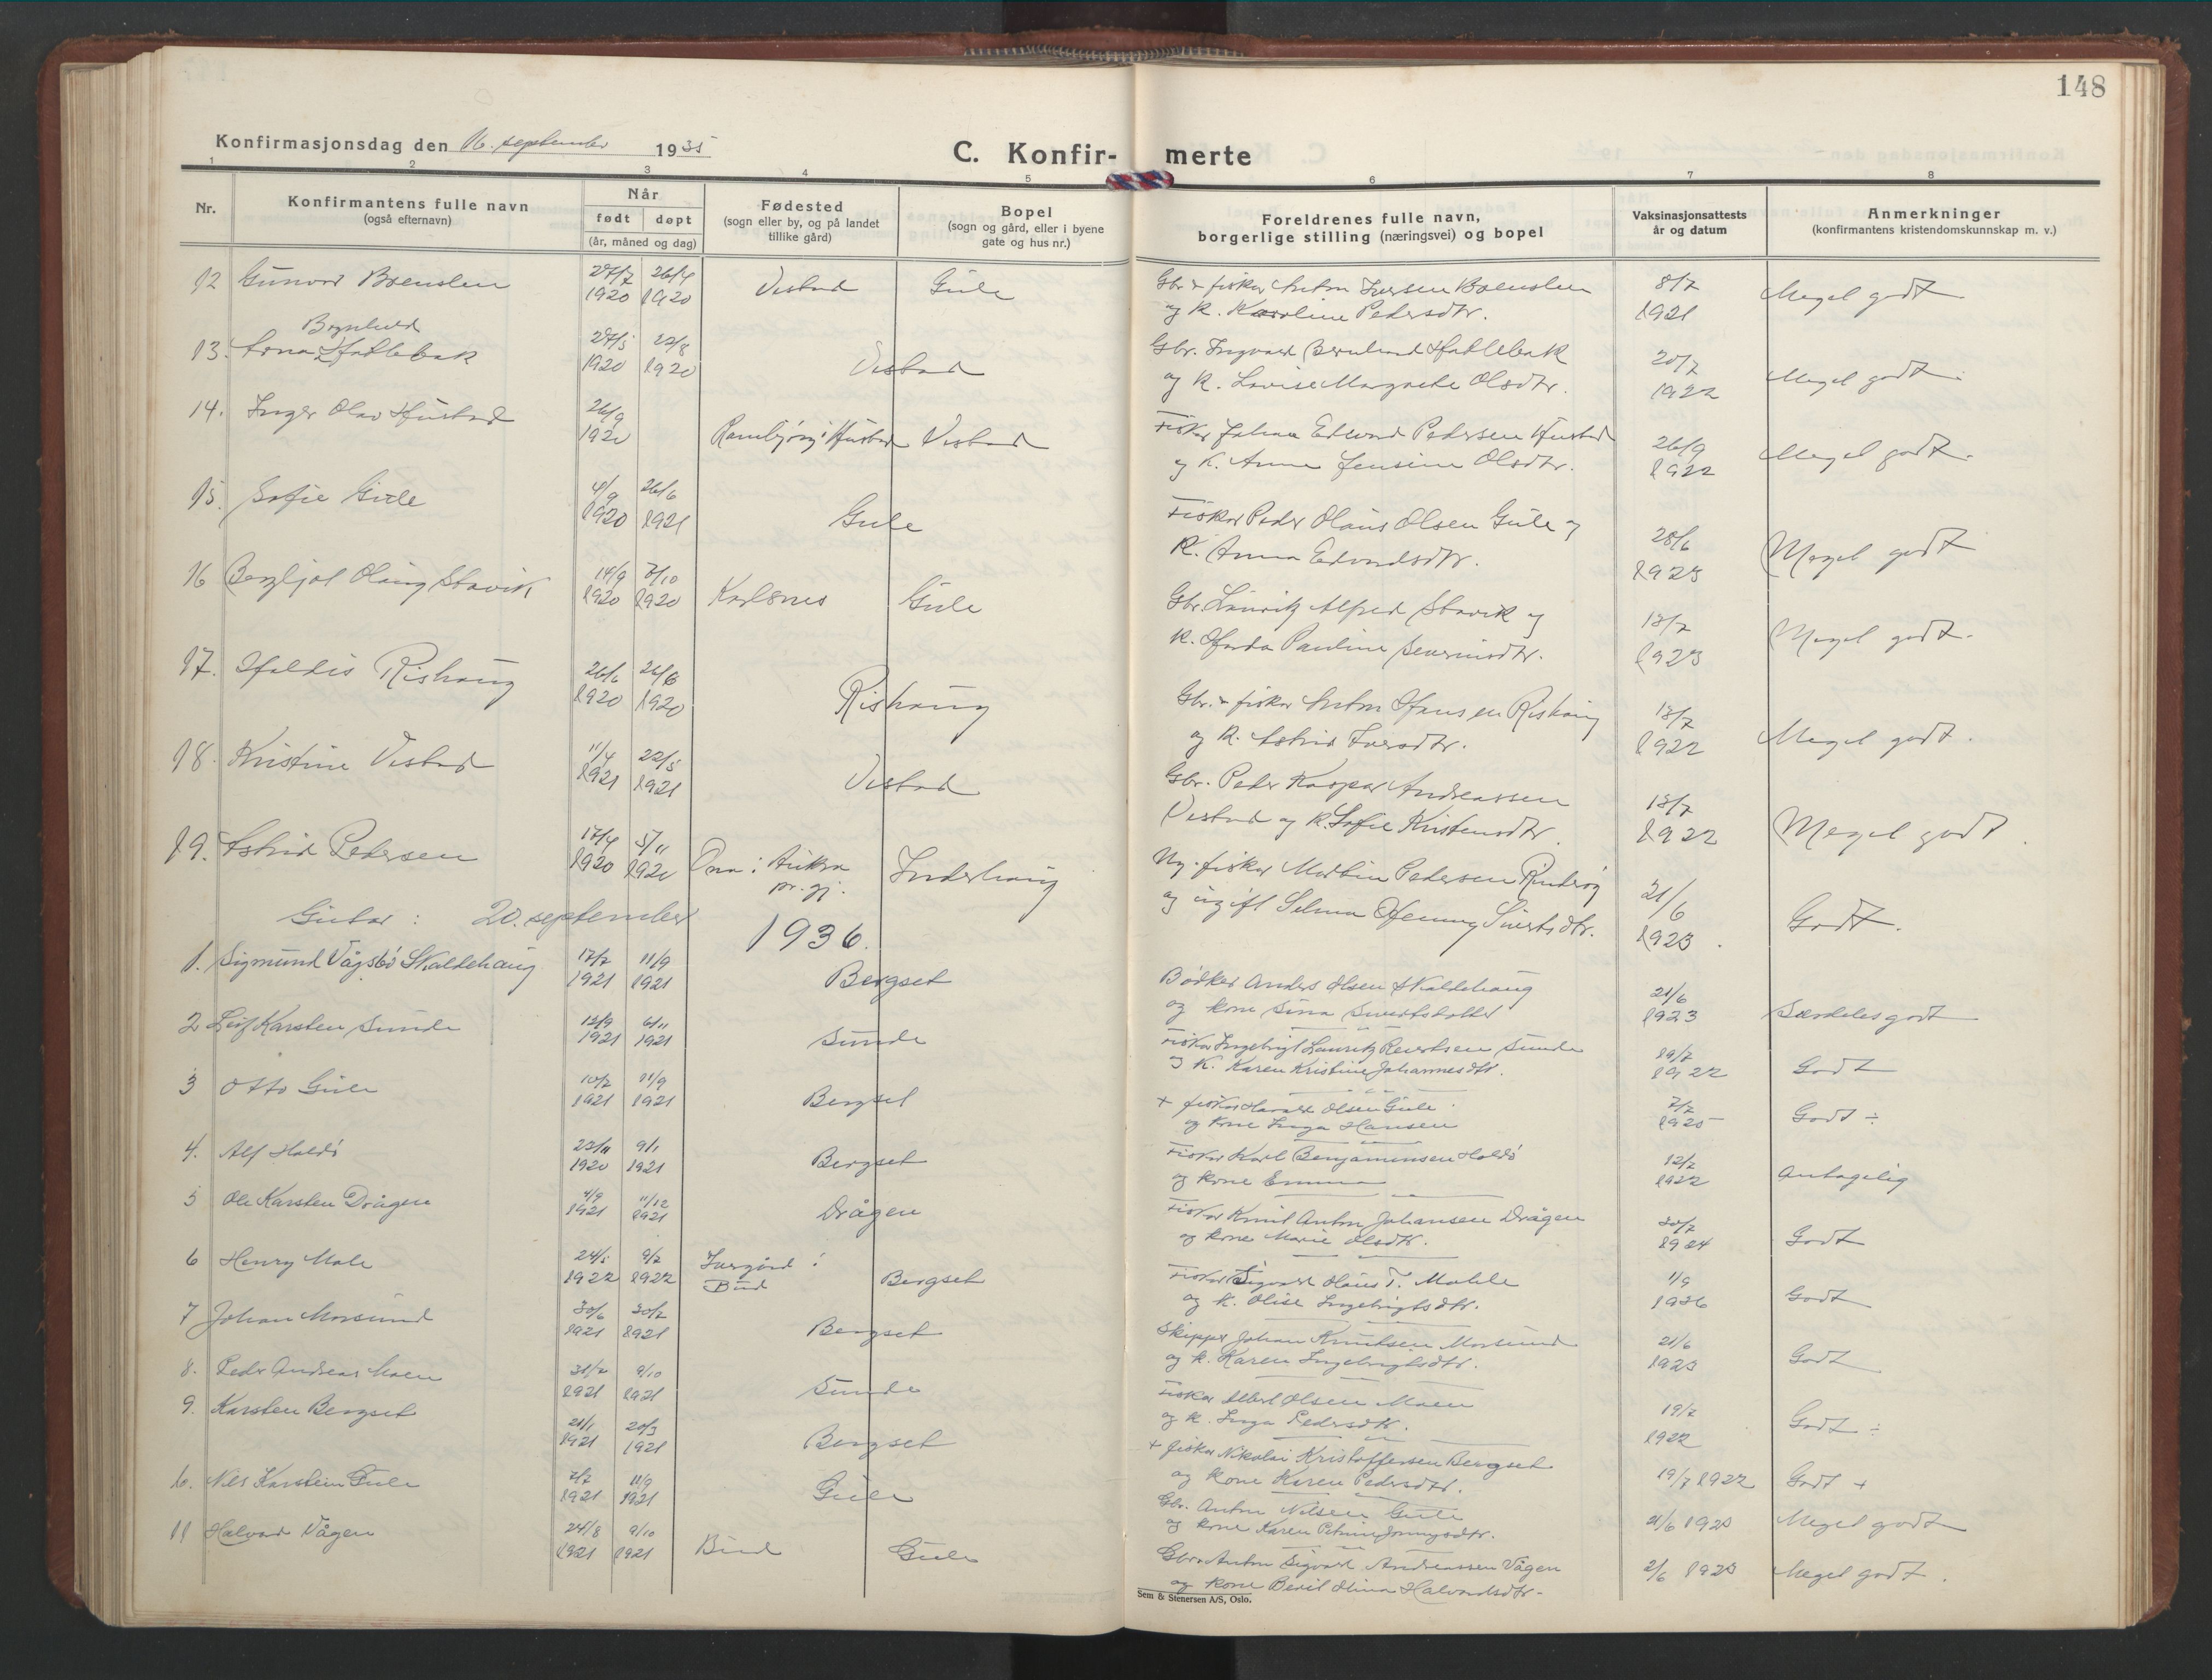 148
Konfirmasjonsdag den 16. september 1935
C. Konfirmerte
1 2 3 4 5 6 7 8
Nr.
Konfirmantens fulle navn
(også efternavn)
Når
født døpt
(år, måned og dag)
Fødested
(sogn eller by, og på landet
tillike gård)
Bopel
(sogn og gård, eller i byene
gate og hus nr.)
Foreldrenes fulle navn,
borgerlige stilling (næringsvei) og bopel
Vaksinasjonsattests
år og datum
Anmerkninger
(konfirmantens kristendomskunnskap m. v.)
12 Gunvor 1920 1920 Vestad Gule
Gbr. & fisker Anton Iversen
og k. Karoline Pedersdtr. 8/7 1921 Meget godt
13. Hatlebak 27/5 1920 22/8 1920 Vestad
Gbr. Ingvald Bernhard Hatlebak
og k. Lovise Margrete Olsdtr. 20/7 1922 Meget godt
14. Inger Olav Hustad 26/9 1920 Hustad Vestad
Fisker Johan Edvard Pedersen Hustad
og k. Anna Jensine Olsdtr. 26/9 1922 Meget godt.
15. Sofie Gule 4/9 1920 26/6 1921 Gule
Fisker Peder Olaus Olsen Gule og
k. Anna Edvardsdtr. 28/6 1923 Meget godt
16 Bergljot Olaug Stavik 14/9 1920 3/10 1920 Karlsnes Gule
Gbr. Lauritz Alfred Stavik og
k. Pauline Severinsdtr. 18/7 1923 Meget godt.
17. Haldis Rishaug 26/6 1920 26/8 1920 Rishaug
Gbr. & fisker Anton Hansen Rishaug
og k. Astrid Iversdtr. 18/7 1922 Meget godt.
18. Kristine Vestad 11/4 1921 22/5 1921 Vestad
Gbr. Peder Kaspar Andreassen
Vestad og k. Sofie Kristensdtr. 18/7 1922 Meget godt.
19. Astrid Pedersen 17/4 1920 5/11 1920 Ona i Aukra
pr. gj. Inderhaug
Ug. fisker Martin Pedersen
og ugift Selma Sivertsdtr. 21/6 1923. Godt.
Gutar: 20. september 1936.
1. Sigmund Vågsbö Skaldehaug 17/7 1921 11/9 1921 Bergset
Bødker Anders Olsen Skaldehaug
og kone Sina Sivertsdatter 21/6 1923 Særdeles godt
2 Leif Karsten Sunde 12/9 1921 6/11 1921 Sunde
Fisker Ingebrigt Lauritz Sunde
og k. Karen Kristine Johannesdtr. 19/7 1922 Godt
3 Otto Gule 10/7 1921 11/9 1921 Bergset
+ fisker Harald Olsen Gule
og kone Inga Hansen 7/7 1925 Godt ÷
4. Alf Holdö 23/11 1920 9/1 1921 Bergset
Fisker Karl Benjaminsen Holdö
og kone Emma 12/7 1922 Antagelig
5 Ole Karsten Drågen 4/9 1921 11/12 1921 Drågen
Fisker Knut Anton Johansen Drågen
og kone Marie Olsdtr. 30/7 1924 Godt
6 Henry Male 24/5 1922 9/7 1922 Bud Bergset
Fisker Sigvald Olaus T. Male
og k. Olise Ingebrigtsdtr. 1/9 1926 Godt
7 Johan Morsund 30/6 1921 30/7 1921 Bergset
Skipper Johan Knutsen Morsund
og k. Karen Ingebrigtsdtr. 21/6 1923 Godt
8. Peder Andreas Moen 31/7 1921 9/10 1921 Sunde
Fisker Albert Olsen Moen
og k. Inga Pedersdtr. 19/7 1922 Godt ÷
9. Karsten Bergset 21/1 1921 20/3 1921 Bergset
+ fisker Nikolai Kristoffersen Bergset
og kone Karen Pedersdtr. 19/7 1922 Godt +
10. Nils Karstein Gule 7/7 1921 11/9 1921 Gule
Gbr. Anton Nilsen Gule
og kone Karen Petrine 21/6 1923 Meget godt
11 Halvard Vågen 24/8 1921 9/10 1921 Bud Gule
Gbr. Anton Sigvard Andreassen Vågen
og kone Berit Olina Halvardsdtr. 2/6 1923 Meget godt.
Sem & Stenersen A/S, Oslo.